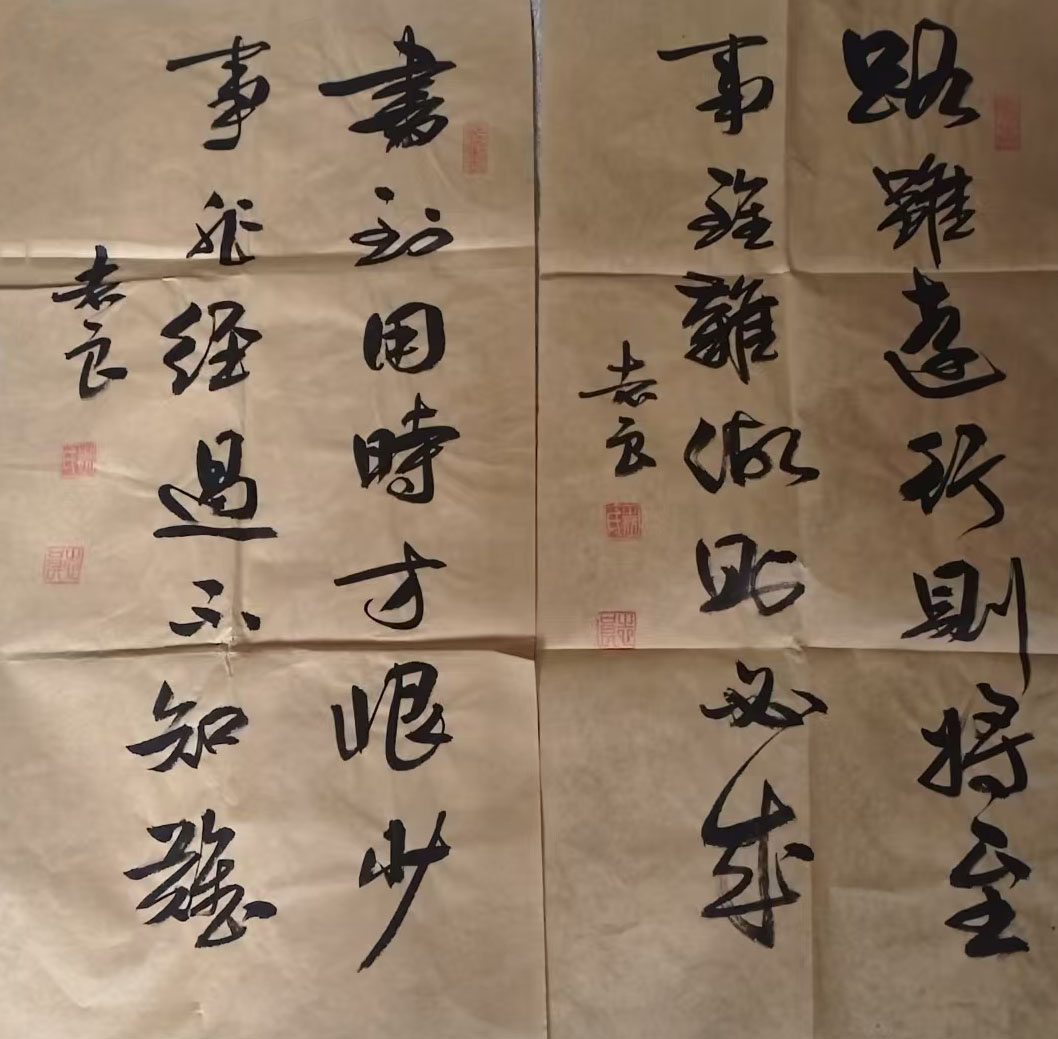 路雖遠行則將至
事雖難做則必成
志良
書到用時方恨少
事非經過不知難
志良